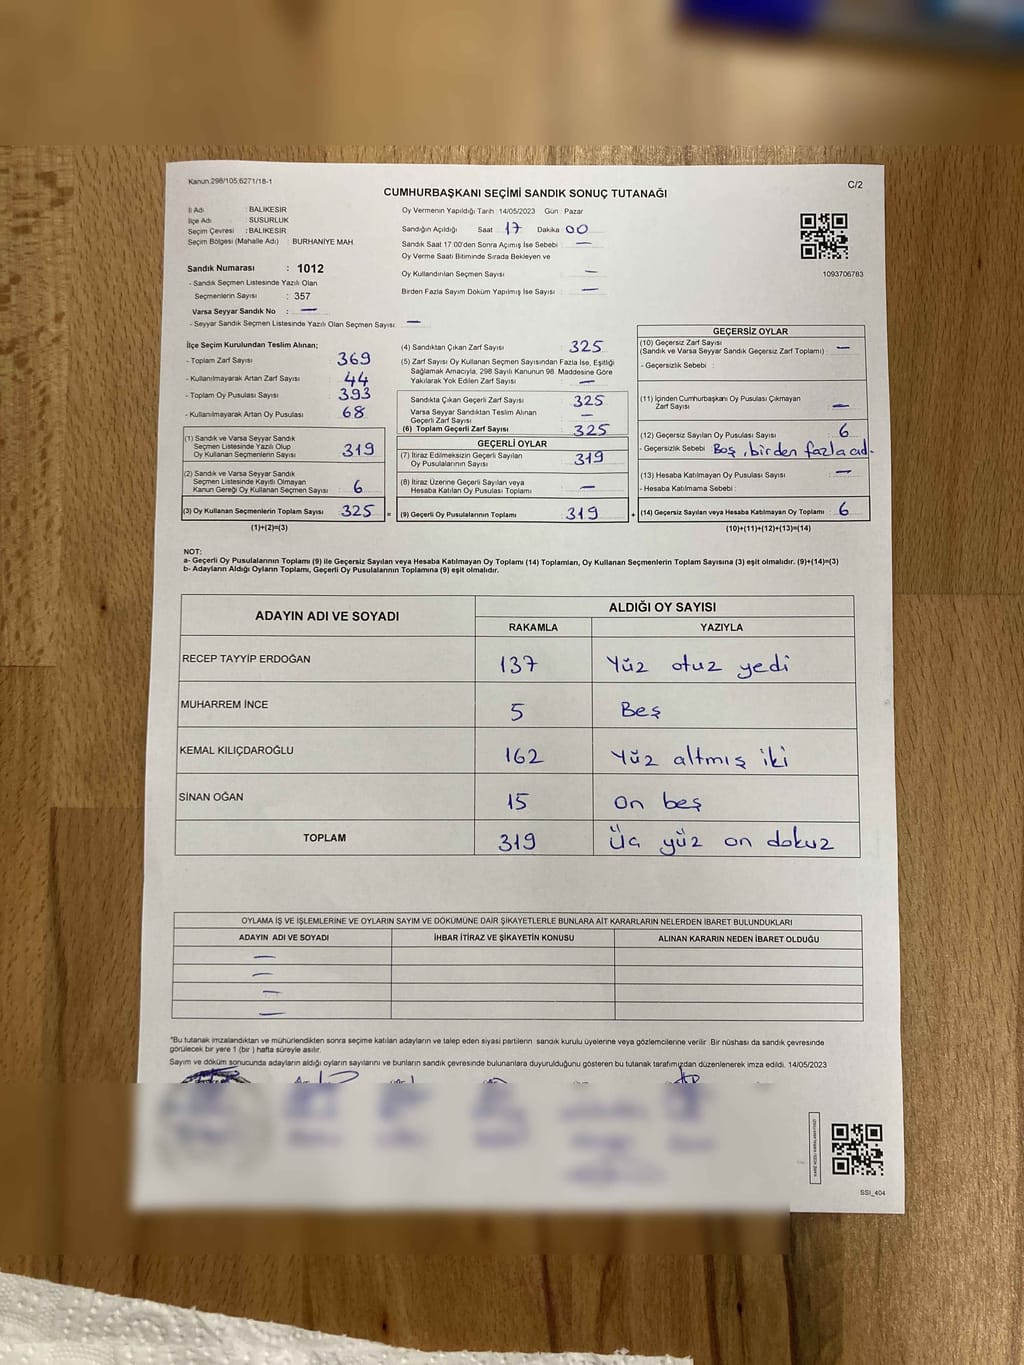 Kanun.298/105,6271/18-1
C/2
CUMHURBAŞKANI SEÇİMİ SANDIK SONUÇ TUTANAĞI
İl Adı : BALIKESİR
İlçe Adı : SUSURLUK
Seçim Çevresi : BALIKESİR
Seçim Bölgesi (Mahalle Adı) : BURHANİYE MAH.
Sandık Numarası : 1012
- Sandık Seçmen Listesinde Yazılı Olan
Seçmenlerin Sayısı : 357
Varsa Seyyar Sandık No : —
- Seyyar Sandık Seçmen Listesinde Yazılı Olan Seçmen Sayısı: —
Oy Vermenin Yapıldığı Tarih : 14/05/2023 Gün : Pazar
Sandığın Açıldığı Saat 17 Dakika 00
Sandık Saat 17:00'den Sonra Açımış İse Sebebi : —
Oy Verme Saati Bitiminde Sırada Bekleyen ve
Oy Kullandırılan Seçmen Sayısı —
Birden Fazla Sayım Döküm Yapılmış İse Sayısı : —
1093706783
İlçe Seçim Kurulundan Teslim Alınan;
- Toplam Zarf Sayısı 369
- Kullanılmayarak Artan Zarf Sayısı 44
- Toplam Oy Pusulası Sayısı 393
- Kullanılmayarak Artan Oy Pusulası 68
(1) Sandık ve Varsa Seyyar Sandık
Seçmen Listesinde Yazılı Olup
Oy Kullanan Seçmenlerin Sayısı 319
(2) Sandık ve Varsa Seyyar Sandık
Seçmen Listesinde Kayıtlı Olmayan
Kanun Gereği Oy Kullanan Seçmen Sayısı : 6
(3) Oy Kullanan Seçmenlerin Toplam Sayısı 325 =
(1)+(2)=(3)
(4) Sandıktan Çıkan Zarf Sayısı : 325
(5) Zarf Sayısı Oy Kullanan Seçmen Sayısından Fazla İse, Eşitliği
Sağlamak Amacıyla, 298 Sayılı Kanunun 98. Maddesine Göre
Yakılarak Yok Edilen Zarf Sayısı : —
Sandıkta Çıkan Geçerli Zarf Sayısı : 325
Varsa Seyyar Sandıktan Teslim Alınan
Geçerli Zarf Sayısı —
(6) Toplam Geçerli Zarf Sayısı : 325
GEÇERLİ OYLAR
(7) İtiraz Edilmeksizin Geçerli Sayılan
Oy Pusulalarının Sayısı : 319
(8) İtiraz Üzerine Geçerli Sayılan veya
Hesaba Katılan Oy Pusulası Toplamı : —
(9) Geçerli Oy Pusulalarının Toplamı : 319 +
GEÇERSİZ OYLAR
(10) Geçersiz Zarf Sayısı
(Sandık ve Varsa Seyyar Sandık Geçersiz Zarf Toplamı) : —
- Geçersizlik Sebebi :
(11) İçinden Cumhurbaşkanı Oy Pusulası Çıkmayan
Zarf Sayısı : —
(12) Geçersiz Sayılan Oy Pusulası Sayısı : 6
- Geçersizlik Sebebi : Boş, birden fazla ad.
(13) Hesaba Katılmayan Oy Pusulası Sayısı : —
- Hesaba Katılmama Sebebi :
(14) Geçersiz Sayılan veya Hesaba Katılmayan Oy Toplamı : 6
(10)+(11)+(12)+(13)=(14)
NOT:
a- Geçerli Oy Pusulalarının Toplamı (9) ile Geçersiz Sayılan veya Hesaba Katılmayan Oy Toplamı (14) Toplamları, Oy Kullanan Seçmenlerin Toplam Sayısına (3) eşit olmalıdır. (9)+(14)=(3)
b- Adayların Aldığı Oyların Toplamı, Geçerli Oy Pusulalarının Toplamına (9) eşit olmalıdır.
ADAYIN ADI VE SOYADI ALDIĞI OY SAYISI
RAKAMLA YAZIYLA
RECEP TAYYİP ERDOĞAN 137 Yüz otuz yedi
MUHARREM İNCE 5 Beş
KEMAL KILIÇDAROĞLU 162 Yüz altmış iki
SİNAN OĞAN 15 On beş
TOPLAM 319 Üç yüz on dokuz
OYLAMA İŞ VE İŞLEMLERİNE VE OYLARIN SAYIM VE DÖKÜMÜNE DAİR ŞİKAYETLERLE BUNLARA AİT KARARLARIN NELERDEN İBARET BULUNDUKLARI
ADAYIN ADI VE SOYADI İHBAR İTİRAZ VE ŞİKAYETİN KONUSU ALINAN KARARIN NEDEN İBARET OLDUĞU
—
—
—
—
*Bu tutanak imzalandıktan ve mühürlendikten sonra seçime katılan adayların ve talep eden siyasi partilerin sandık kurulu üyelerine veya gözlemcilerine verilir. Bir nüshası da sandık çevresinde
görülecek bir yere 1 (bir ) hafta süreyle asılır.
Sayım ve döküm sonucunda adayların aldığı oyların sayılarını ve bunların sandık çevresinde bulunanlara duyurulduğunu gösteren bu tutanak tarafımızdan düzenlenerek imza edildi. 14/05/2023
SSI_404